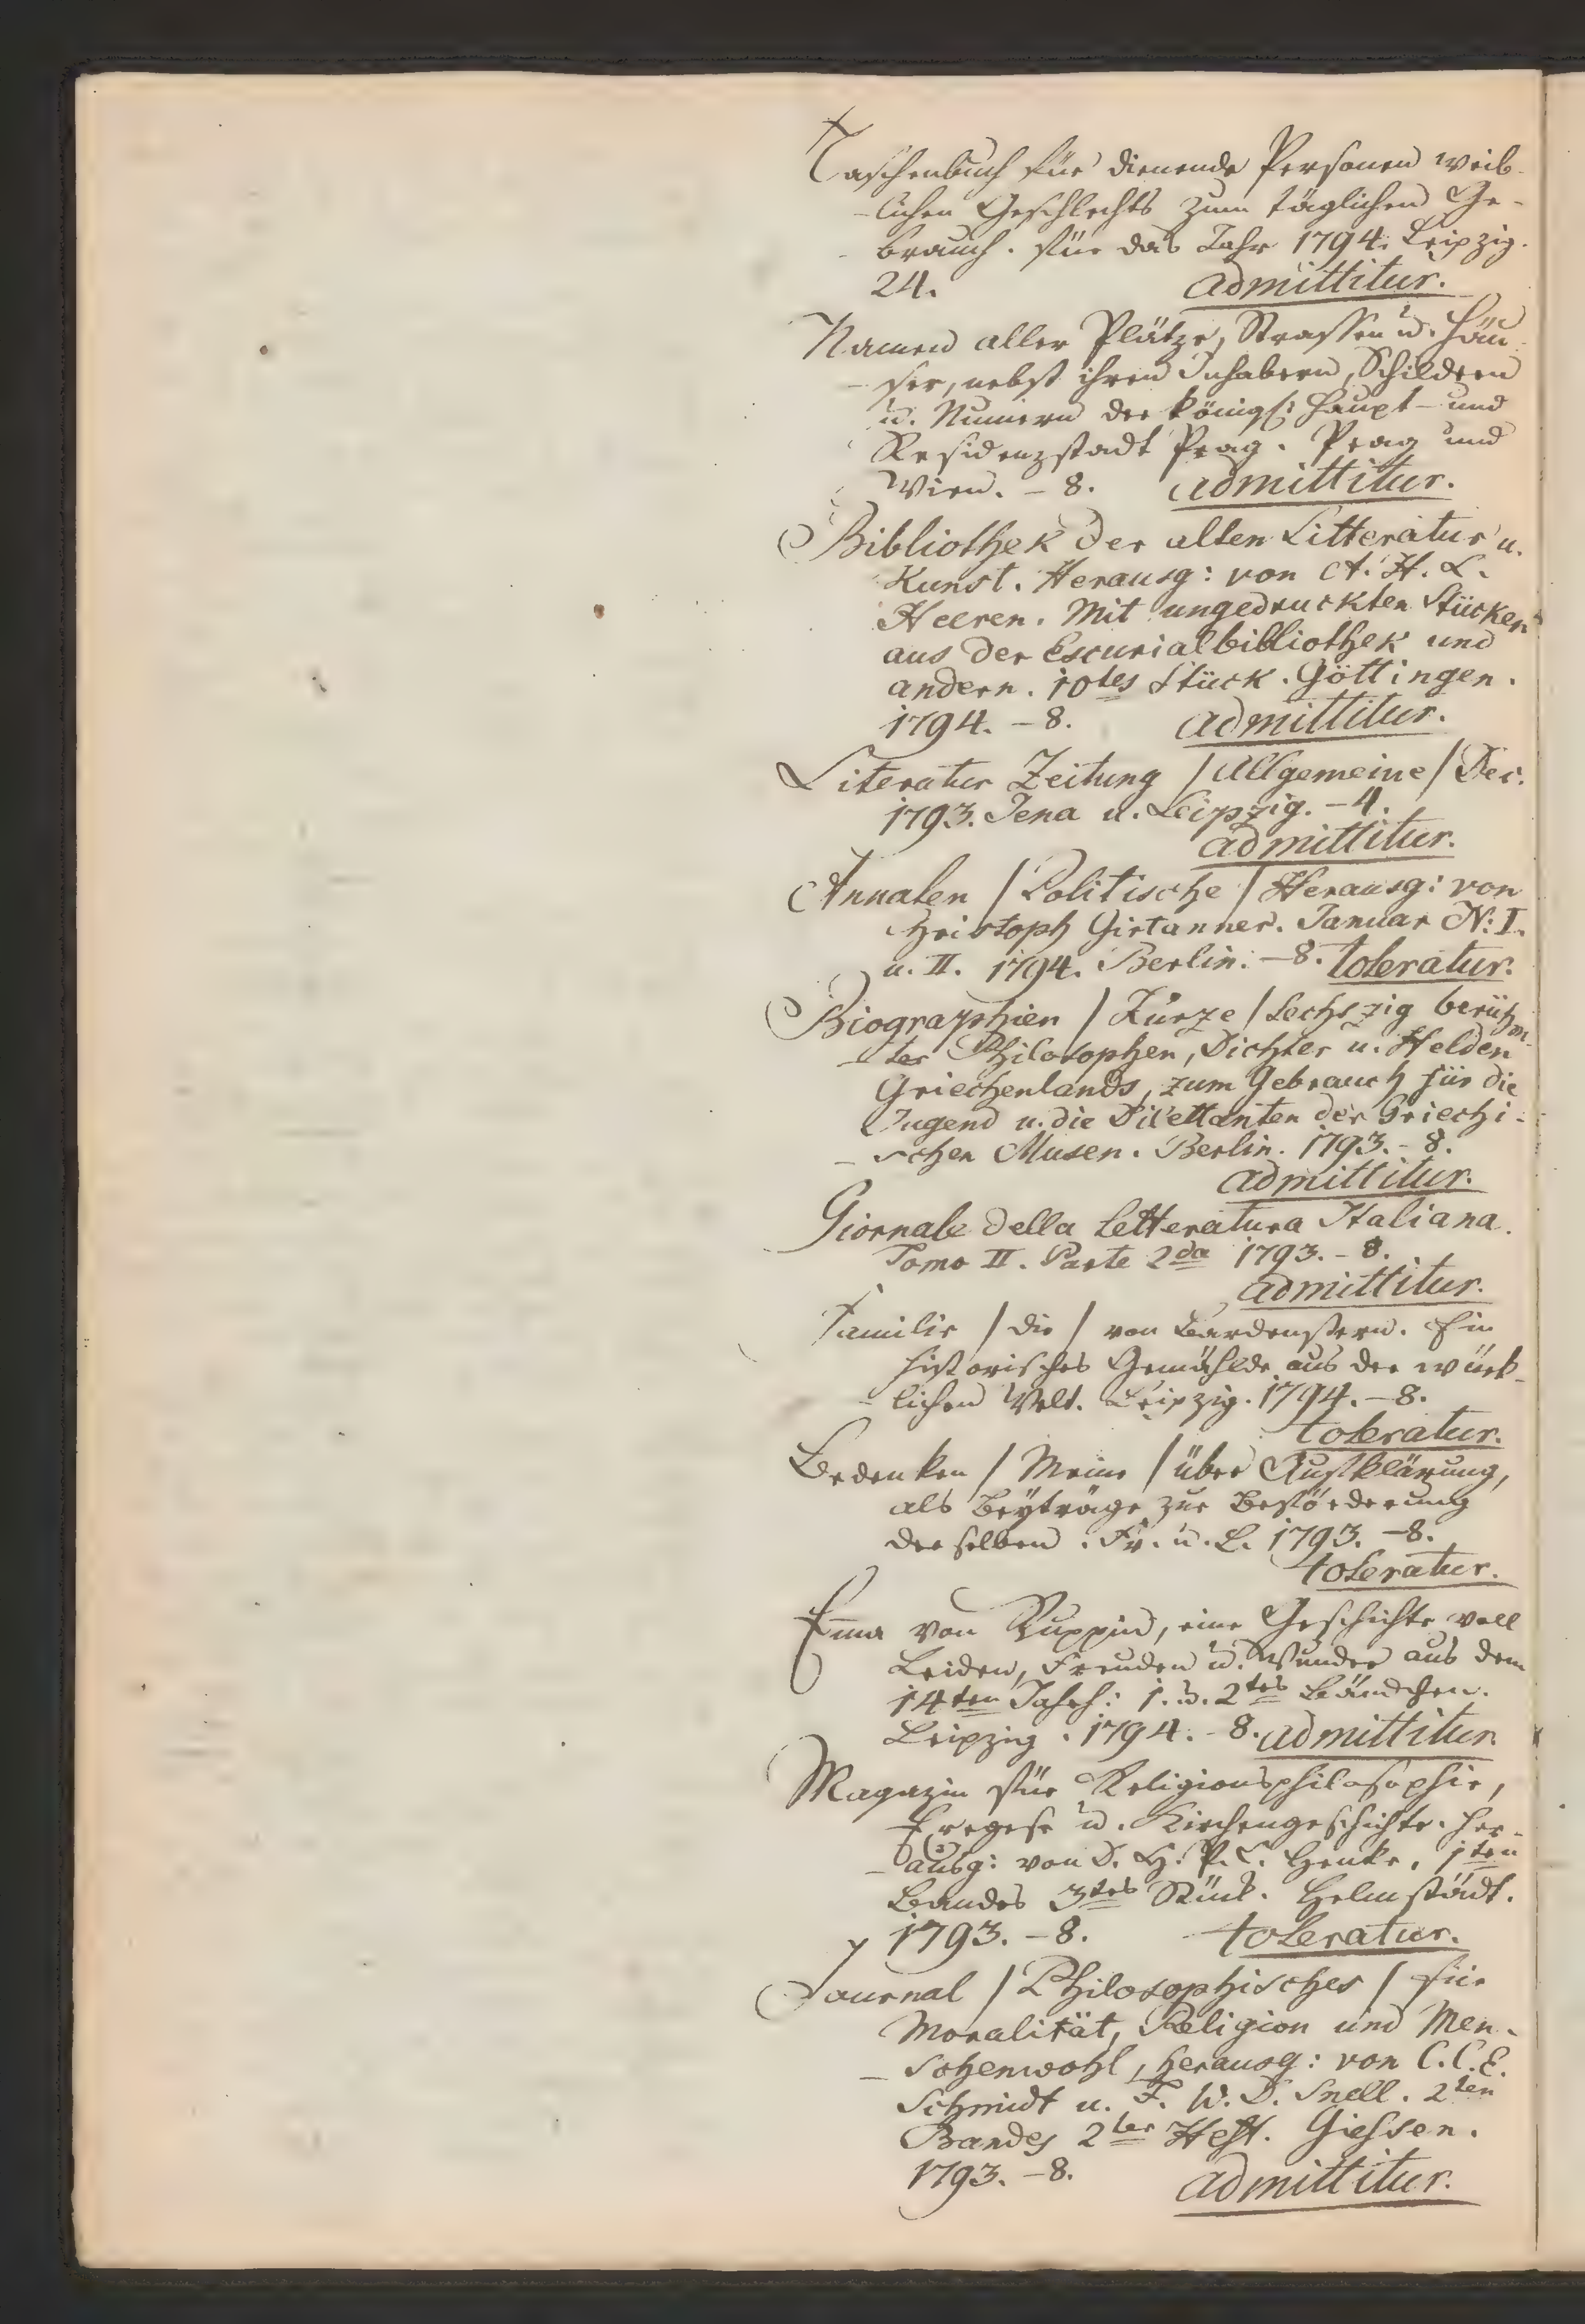 Taschenbuch für dienende Personen weib-
-lichen Geschlechts zum täglichen Ge-
-brauch. für das Jahr 1794. Leipzig.
24. admittitur.
Namen aller Plätze, Strassen u. Häu-
-ser, nebst ihren Inhabern, Schildern
u. Numern der königl: Haupt- und
Residenzstadt Prag. Prag und
Wien. - 8. admittitur.
Bibliothek der alten Litteratur u.
Kunst. Herausg: von A. H. L.
Heeren. Mit ungedruckten Stücken
aus der Escurialbibliothek und
andern. 10tes Stück. Göttingen.
1794. - 8. admittitur.
Literatur Zeitung / Allgemeine / Dec.
1793. Jena u. Leipzig. - 4.
admittitur.
Annalen / Politische / Herausg: von
Christoph Girtanner. Januar N: I.
u. II. 1794. Berlin. - 8. toleratur.
Biographien / Kurze / sechszig berühm-
-ter Philosophen, Dichter u. Helden
Griechenlands, zum Gebrauch für die
Jugend u. die Dilettanten der Griechi-
-schen Musen. Berlin. 1793. - 8.
admittitur.
Giornale della Letteratura Italiana.
Tomo II. Parte 2da 1793. - 8.
admittitur.
Familie / die / von Bardenstern. Ein
historisches Gemählde aus der würk-
-lichen Welt. Leipzig. 1794. - 8.
toleratur.
Bedenken / Meine / über Aufklärung,
als Beyträge zur Beförderung
derselben. Fr. u. L. 1793. - 8.
toleratur.
Emma von Ruppin, eine Geschichte voll
Leiden, Freuden u. Wunder aus dem
14ten Jahrh: 1. u. 2tes Bändchen.
Leipzig. 1794. - 8. admittitur
Magazin für Religionsphilosophie,
Exegese u. Kirchengeschichte. Her-
-ausg: von D. H. P. C. Henke, 1ten
Bandes 3tes Stück. Helmstädt.
1793. - 8. toleratur.
Journal / Philosophisches / für
Moralität, Religion und Men-
-schenwohl, herausg: von C. C. E.
Schmidt u. F. W. D. Snell. 2ten
Bandes 2ter Heft. Giessen.
1793. - 8. admittitur.